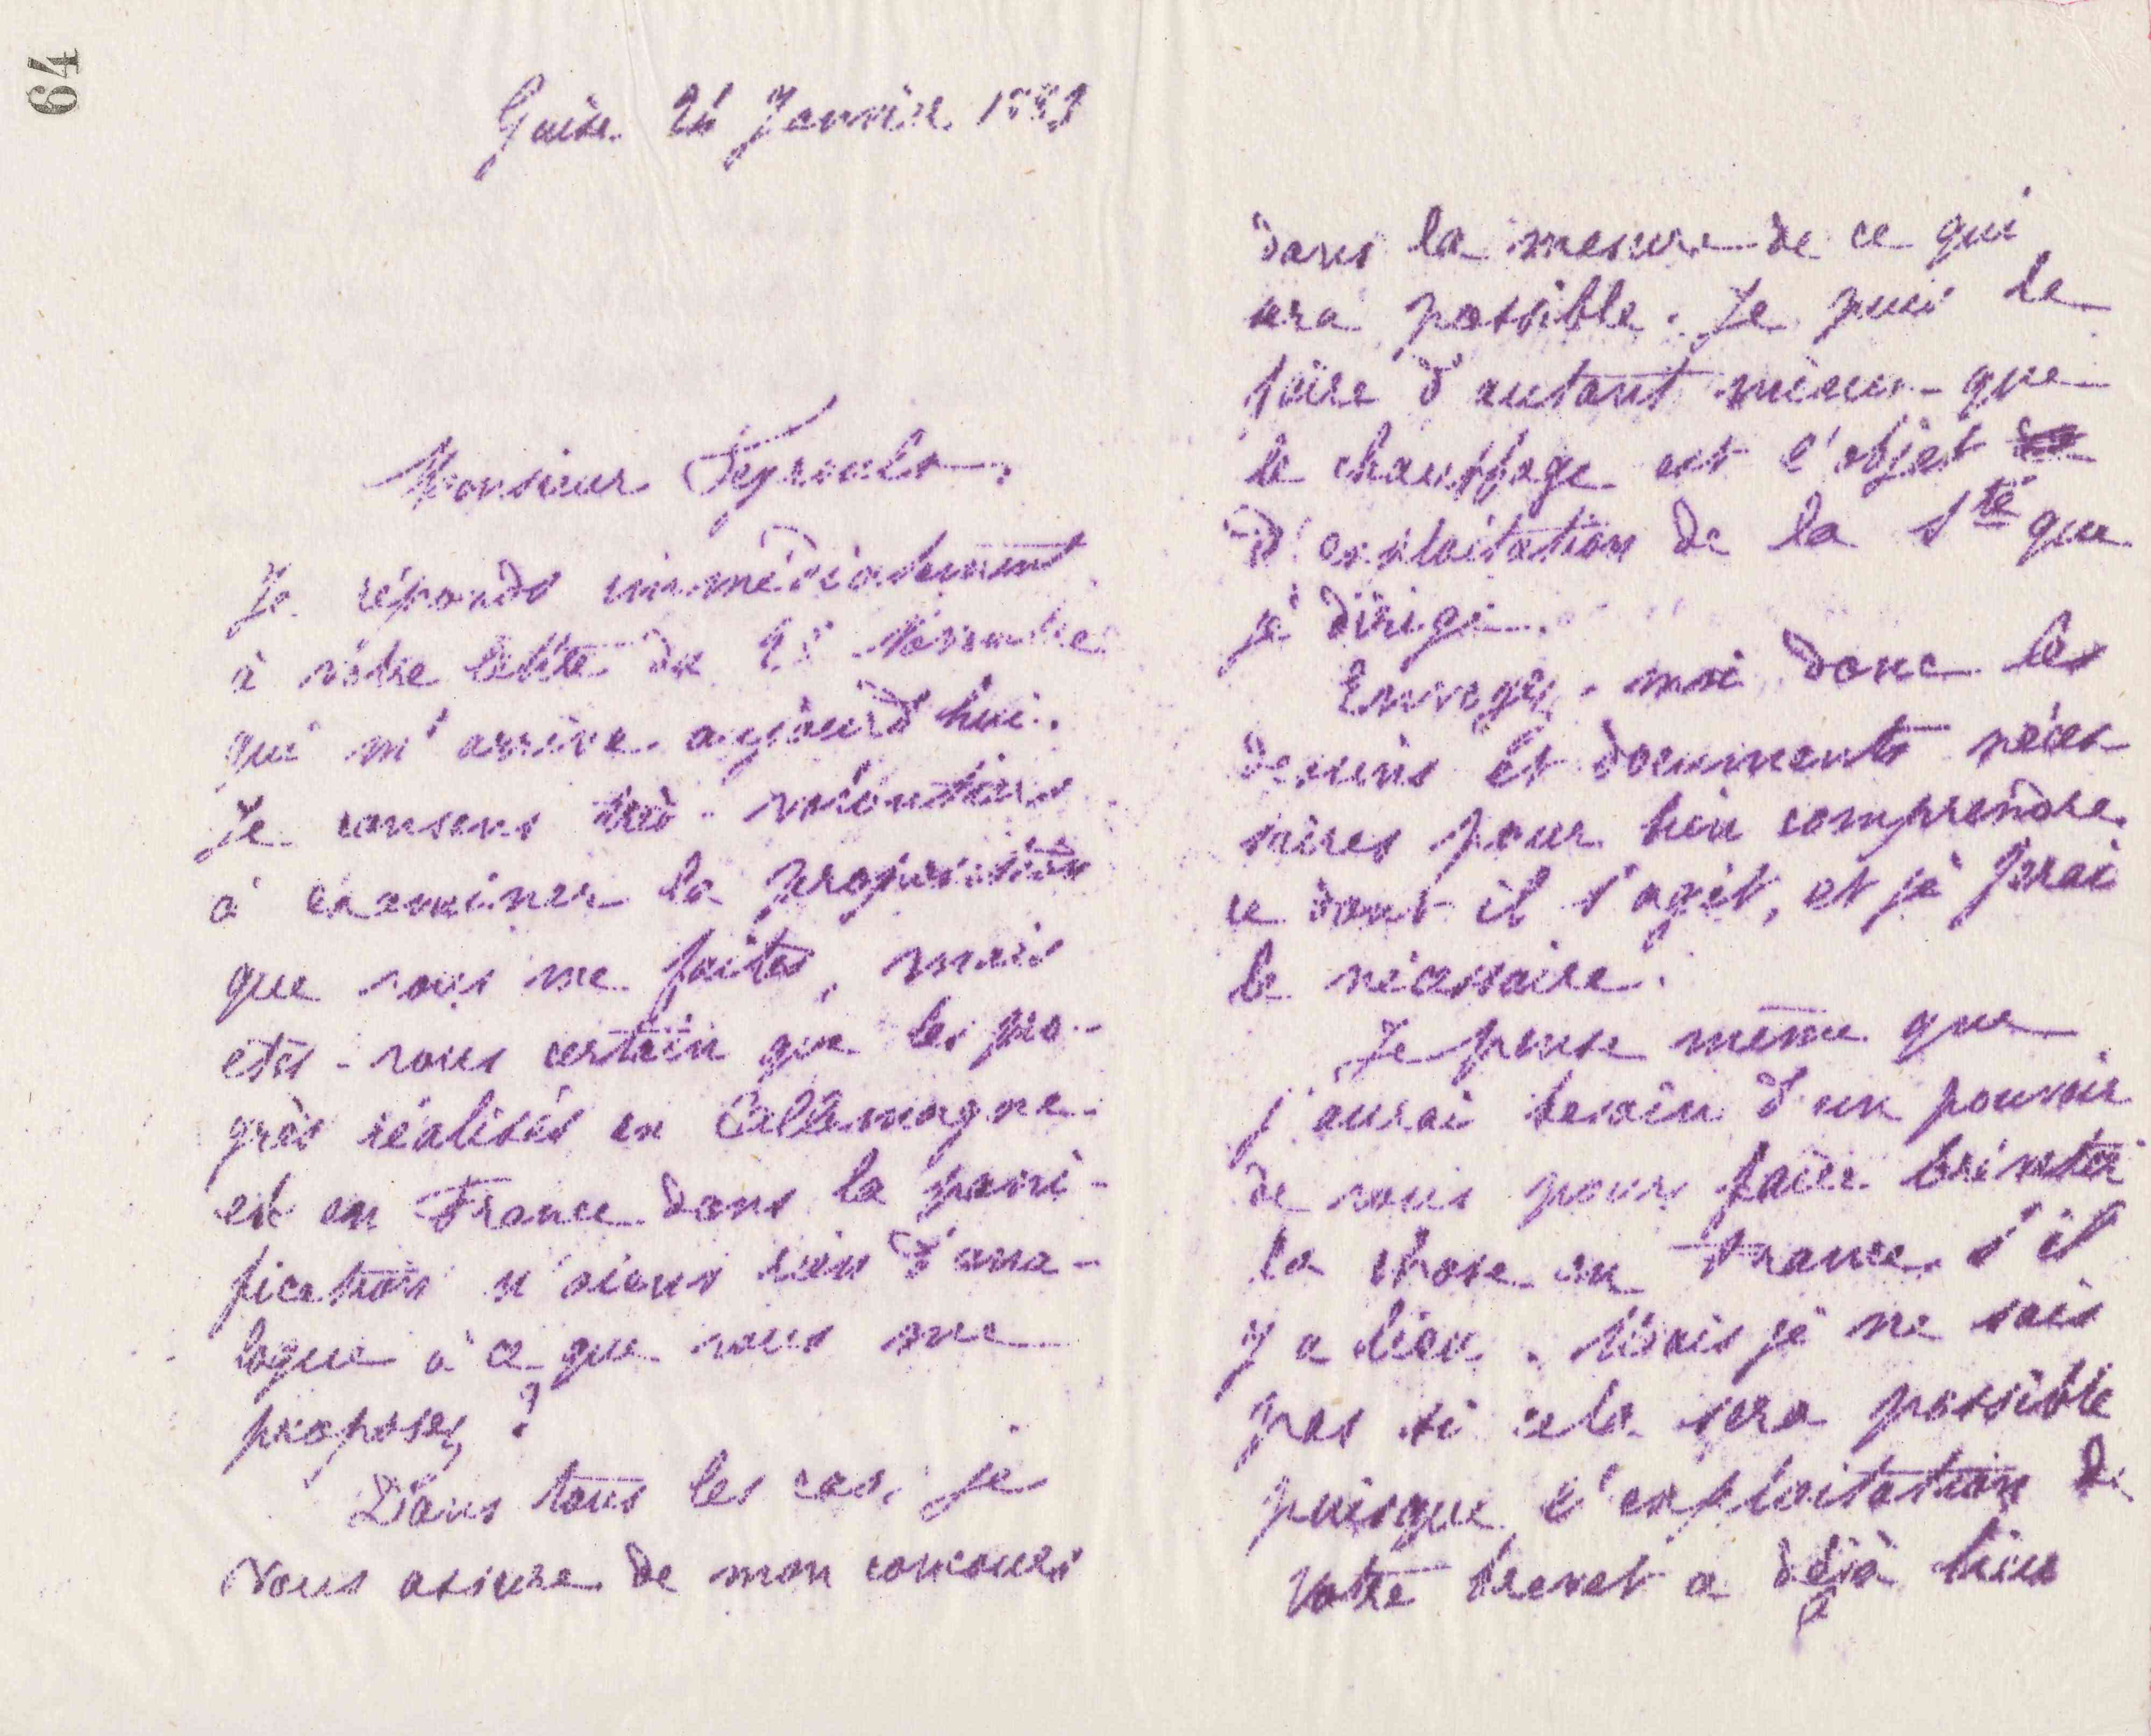 64
Guise 24 Janvier 1881
Monsieur
Je réponds immédiatement
à votre lettre du 25 Novembre
qui m'arrive aujourd'hui.
Je consens très-volontiers
à examiner la proposition
que vous me faites, mais
êtes-vous certain que les pro-
grès réalisés en Allemagne
et en France dans la pani-
fication n'aient rien d'ana-
logue à ce que vous me
proposez ?
Dans tous les cas, je
vous assure de mon concours
dans la mesure de ce qui
sera possible. Je puis le
faire d'autant mieux que
le chauffage est l'objet
d'exploitation de la Sté que
je dirige.
Envoyez-moi donc les
dessins et documents néces
saires pour bien comprendre
ce dont il s'agit, et je ferai
le nécessaire.
Je pense même que
j'aurai besoin d'un pouvoir
de vous pour faire bréveter
la chose en France s'il
y a lieu. Mais je ne sais
pas si cela sera possible
puisque l'exploitation de
votre brevet a déjà lieu